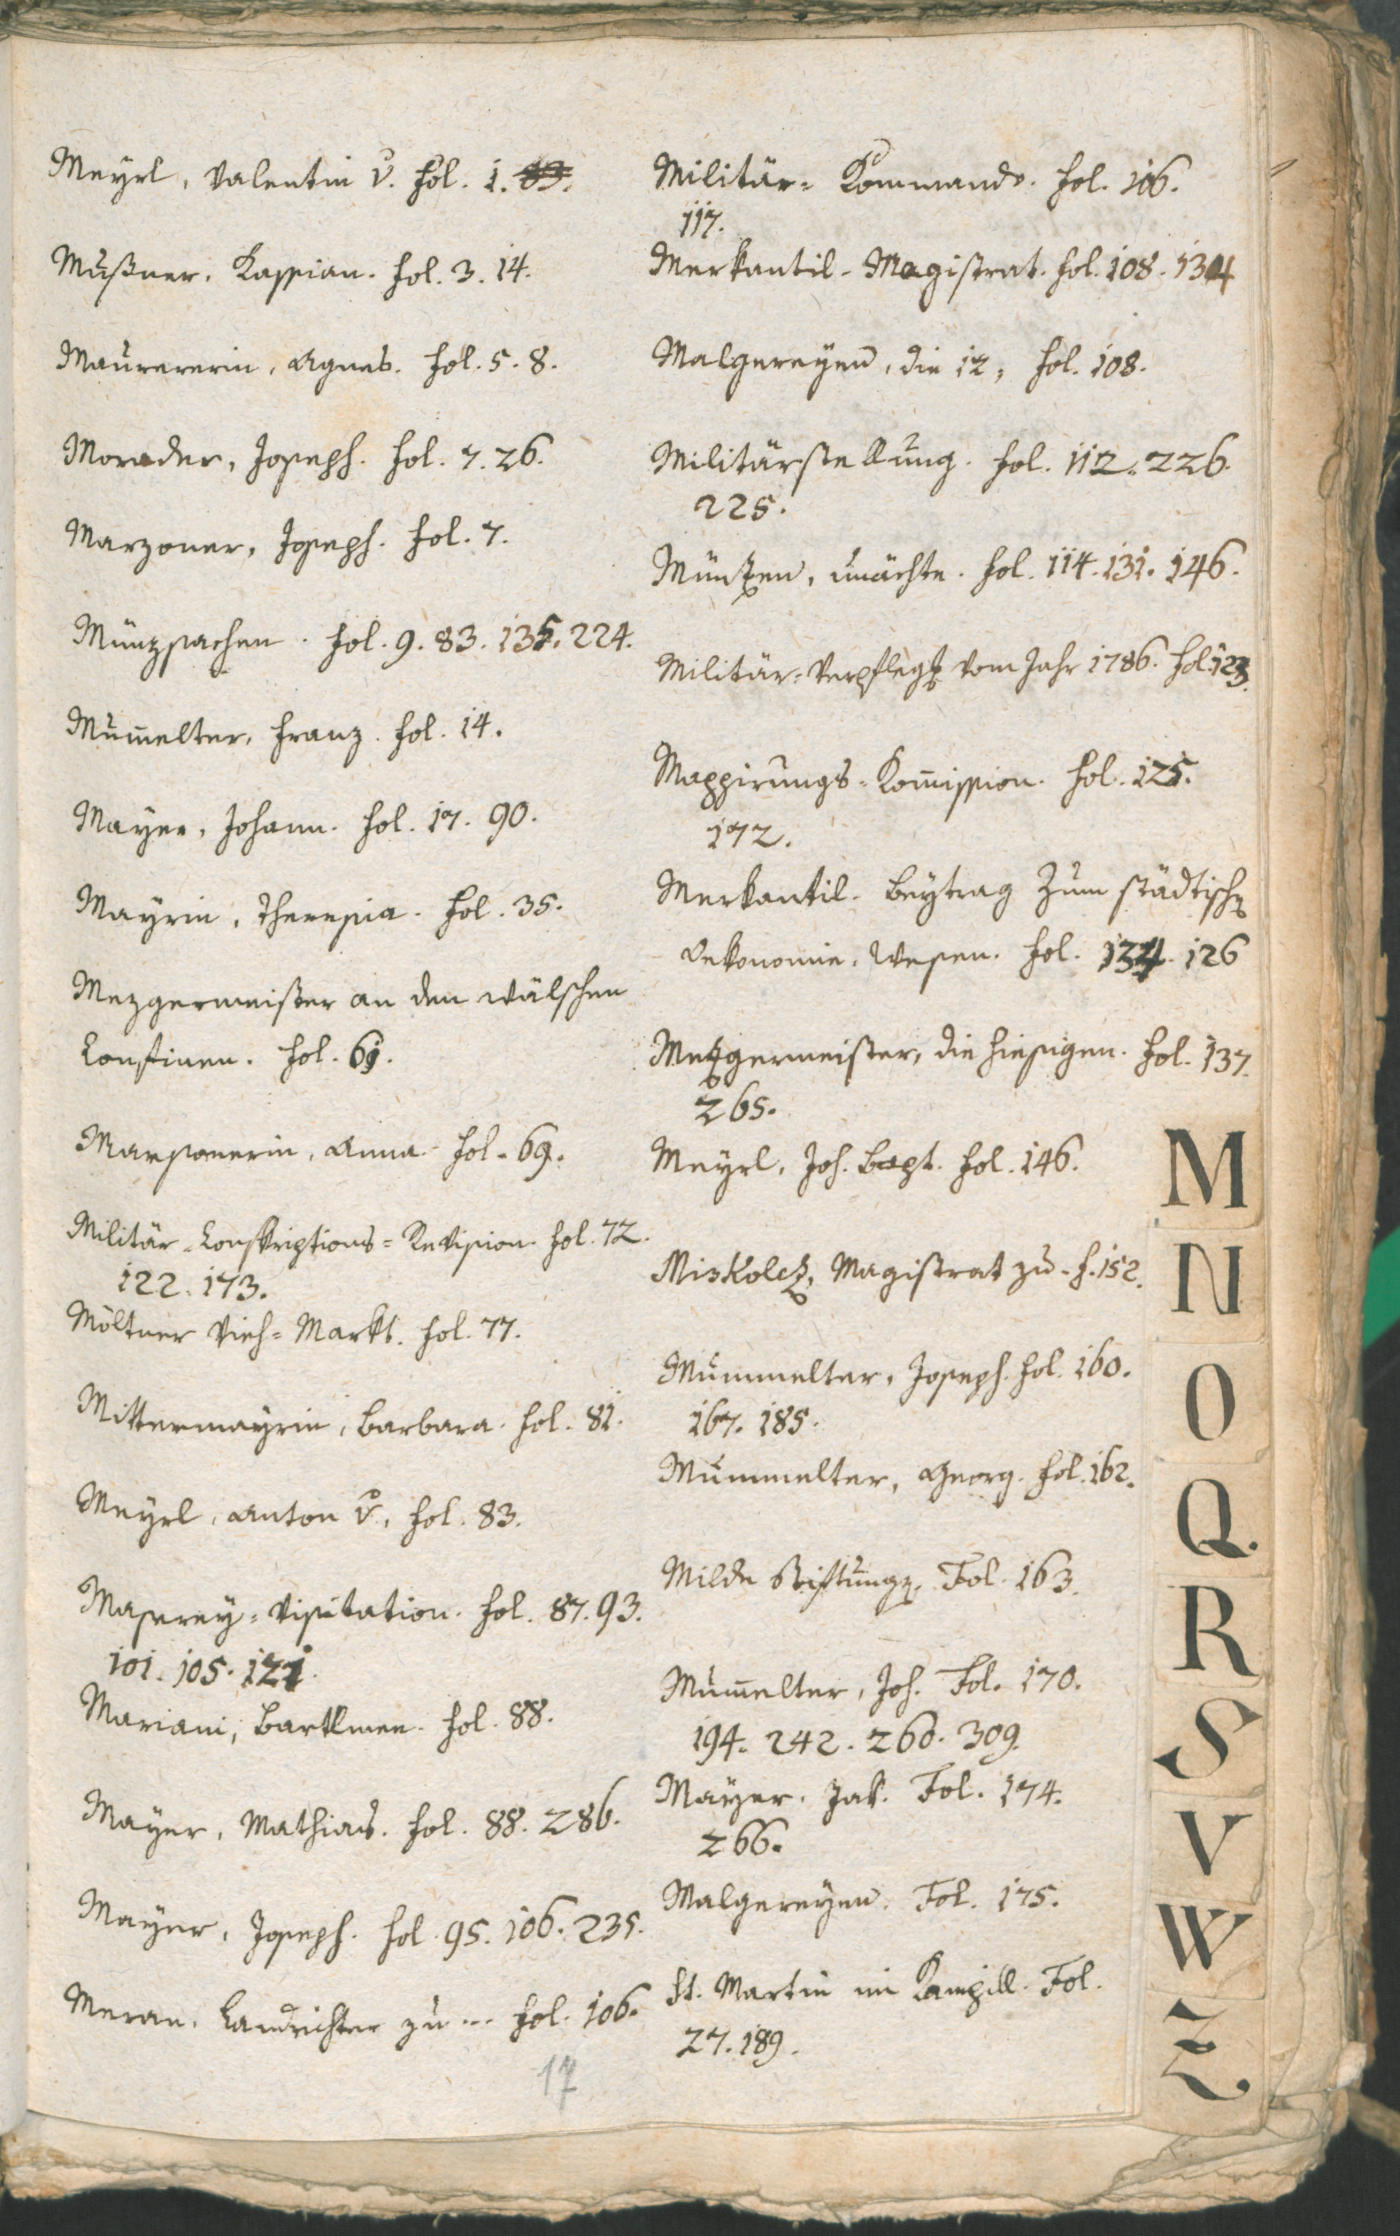 Meyrl, Valentin v. fol. 1. 83.
Mußner, Kassian. fol. 3. 14.
Maurererin, Agnes. fol. 5. 8.
Morader, Joseph. fol. 7. 26.
Marzoner, Joseph. fol. 7.
Münzsachen. fol. 9. 83. 135. 224.
Mum̄elter, Franz. fol. 14.
Mayer, Johann. fol. 17. 90.
Mayrin, Theresia. fol. 35.
Mezgermeister an den wälschen
Confinen. fol. 61.
Marsonerin, Anna. fol. 69.
Militär-Conskriptions=Revision. fol. 72.
122. 173.
Möltner Vieh=Markt. fol. 77.
Mittermayrin, Barbara. fol. 81.
Meyrl, Anton v. fol. 83.
Maserey=Visitation. fol. 87. 93.
101. 105. 121.
Mariani, Bartlmee. fol. 88.
Mayer, Mathias. fol. 88. 286.
Mayer, Joseph. fol. 95. 106. 235.
Meran, Landrichter zu ... fol. 106.
17
Militär=Kommando. fol. 106.
117.
Merkantil-Magistrat. fol. 108. 134
Malgereyen, die 12, fol. 108.
Militärstellung. fol. 112. 226.
225.
Münzen, unächte. fol. 114. 131. 146.
Militär=Verpflegg vom Jahr 1786. fol. 123.
Mappirungs-Kom̄ission. fol. 125.
172.
Merkantil-Beytrag zum städtisch
Oekonomie-Wesen. fol. 134. 126
Mezgermeister, die hiesigen. fol. 137.
265.
Meyrl, Joh. Bapt. fol. 146.
Miskolcz, Magistrat zu. f. 152.
Mummelter, Joseph. fol. 160.
167. 185.
Mummelter, Georg. fol. 162.
Milde Stiftung. Fol. 163.
Mum̄elter, Joh. Fol. 170.
194. 242. 260. 309.
Mayer, Jak. Fol. 174.
266.
Malgereyen. Fol. 175.
St. Martin im Kampill. Fol.
27. 189.
M
N
O
Q.
R
S
V
W
Z